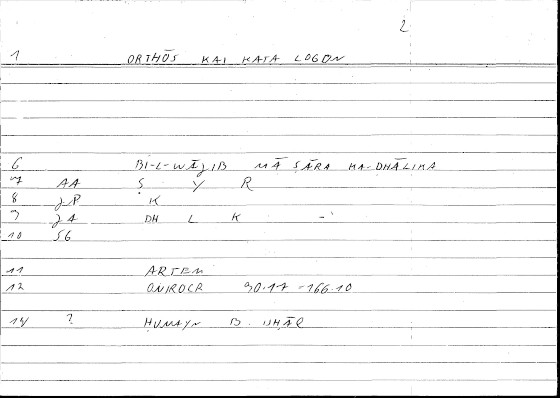 2
1 ORTHŌS KAI KATA LOGON
6 BI-L-WĀJIB MĀ ṢĀRA KA-DHĀLIKA
7 AA Ṣ Y R
8 JP K
9 JA DH L K -'
10 S6
11 ARTEM
12 ONIROCR 30.17 -166.10
14 ? HUMAYN B. ISHĀQ